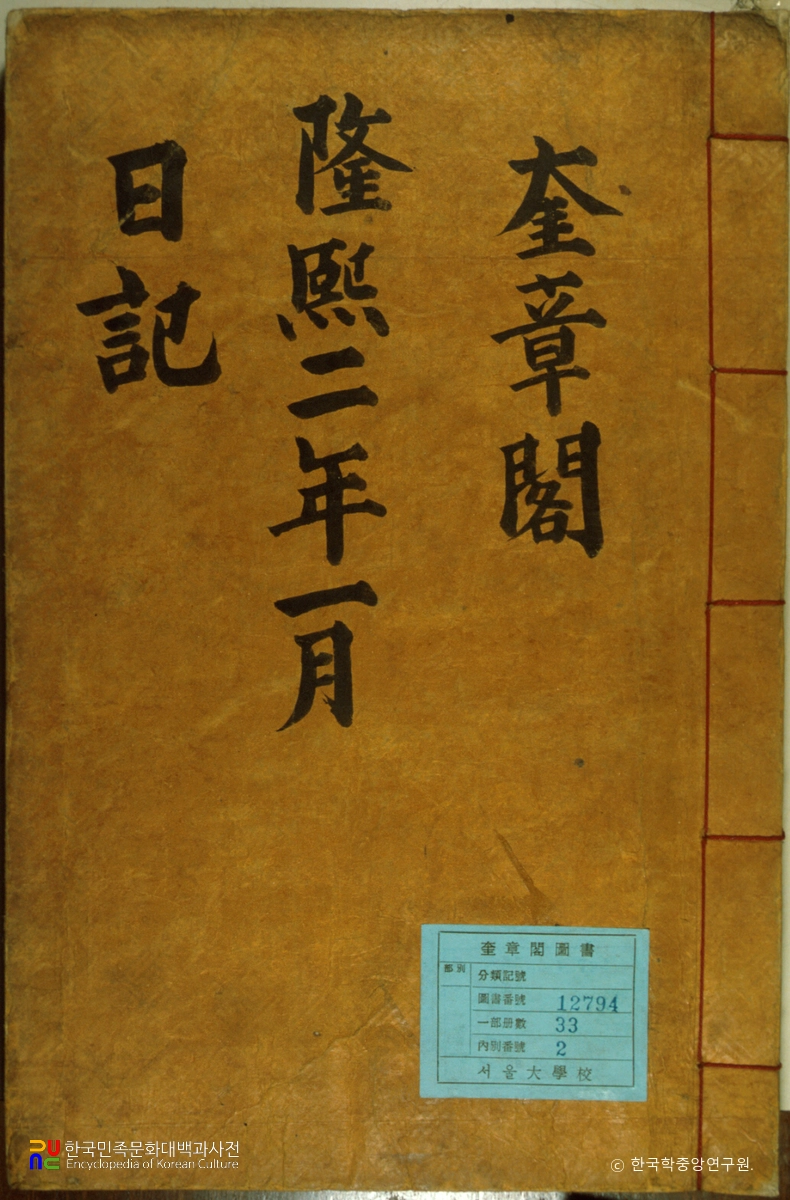 奎章閣
隆熙二年一月
日記
奎章閣圖書
部別
分類記號
圖書番號 12794
一部册數 33
內別番號 2
서울大學校
한국민족문화대백과사전
Encyclopedia of Korean Culture
ⓒ 한국학중앙연구원.